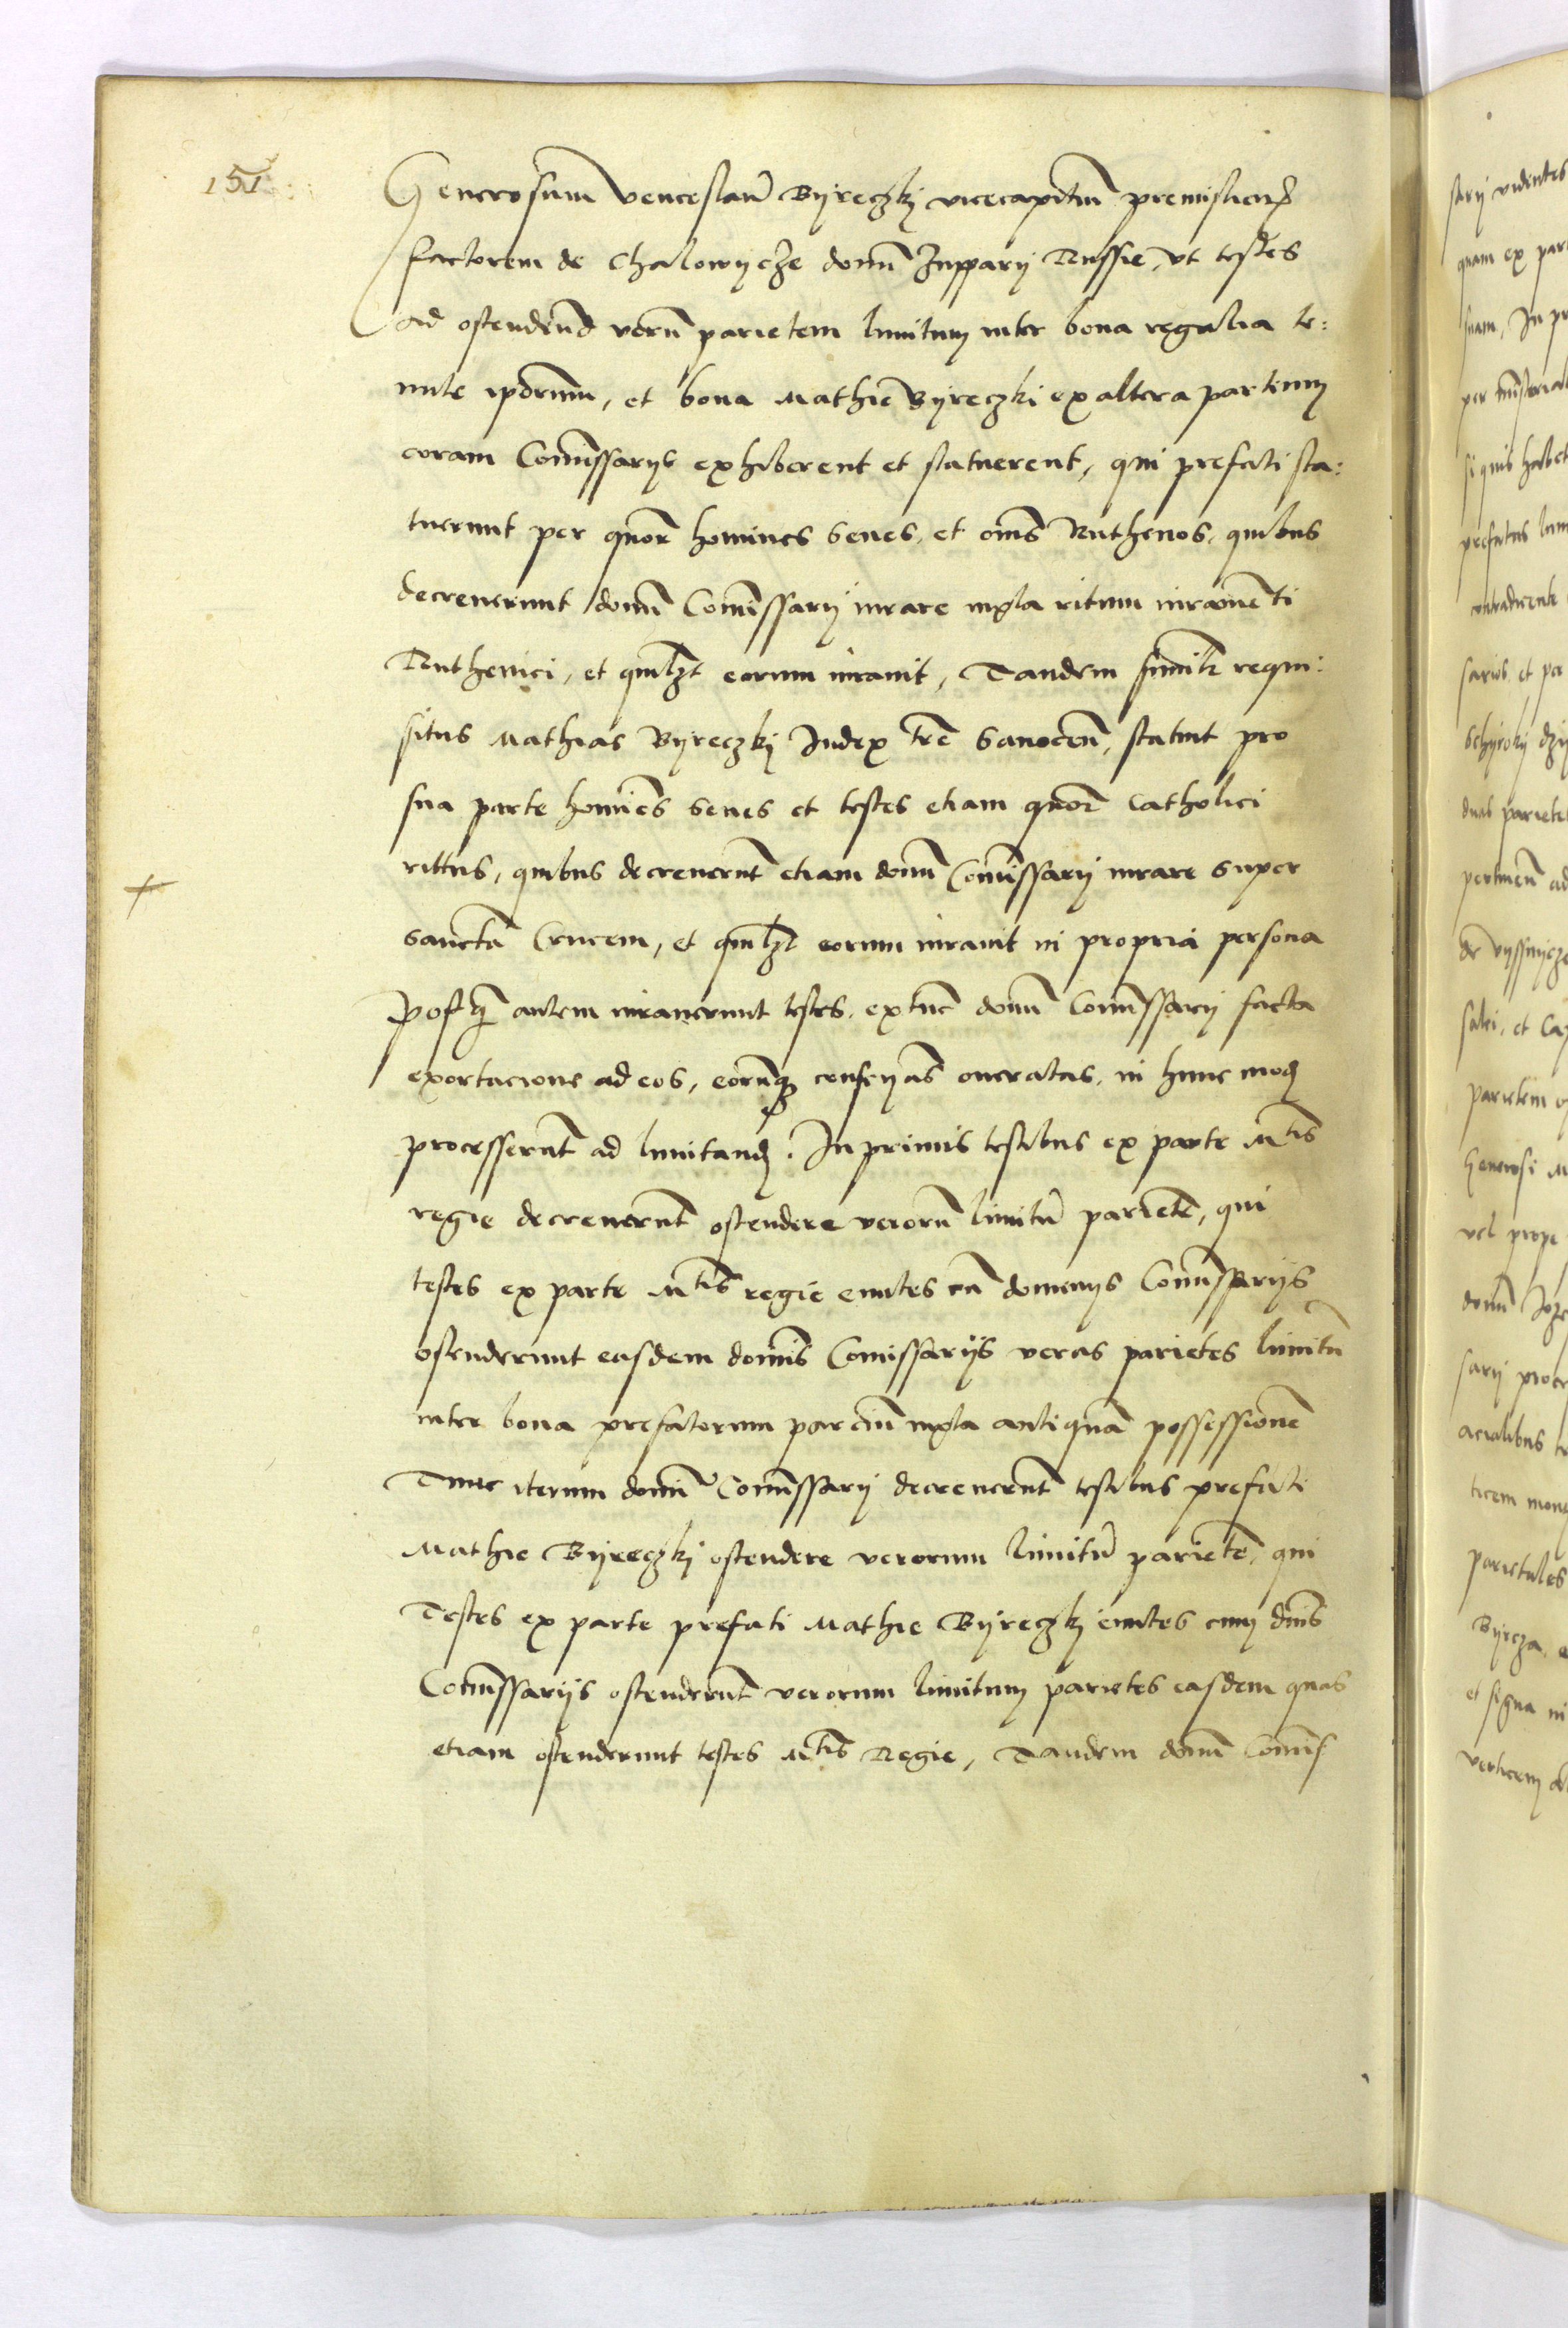 151
Generosum Venceslaũ Byreczkj vicecapitm̃ premislieñ
factorem de Chalowycze domĩ Zuppary Russie, ut testes
ad ostendend verũ parietem limitum inter bona regalia te:
nute ipdrum, et bona Mathie Byreczki ex altera partium
coram Com̃issarys exhiberent et statuerent, qui prefati sta:
tuerunt per quor homines senes, et oms̃ Ruthenos, quibus
decreuerunt domĩ Com̃issary iurare iuxta ritum iuramẽti
Ruthenici, et quilʒt eorum iurauit, Tandem simili requi:
situs Mathias Byreczkj Iudex trẽ Sanoceñ, statuit pro
sua parte homiẽs senes et testes etiam quor Catholici
rittus, quibus decreuerũt etiam domĩ Com̃issary iurare super
sanctã Crucem, et quilʒt eorum iurauit in propria persona
Postq̃ autem iurauerunt testes, extũc domĩ Com̃issary facta
exortacione ad eos, eorũq̃ consciãs oneratas, in hunc mod
processerũt ad limitand. In primis testibus ex parte Mtis
regie decreuerũt ostendere verorũ limitũ parietẽ, qui
testes ex parte Mtis regie eũtes cũ dominys Com̃issarijs
ostenderunt easdem domĩs Comissarijs veras parietes limitũ
inter bona prefatorum parciũ iuxta antiquã possessionẽ
Tunc iterum domĩ Com̃issary decreuerũt testibus prefati
Mathie Byreczkj ostendere verorum limitũ parietẽ, qui
Testes ex parte prefati Mathie Byreczkj eũtes cum dñis
Com̃issarijs ostenderũt verorum limitum parietes easdem quas
etiam ostenderunt testes Mtis Regie, Tandem domĩ Com̃iss
+
sary videntes
quam ex par
suam, In pr
per m̃isterial
si quis habet
prefatus lim
contradicente
sarios, et pa
duas pariete
pertineñ ad
parietem
Generosi M
vel prope
sary proce
ticem mon
parietales
Byrcza, e
et signa in
verticem